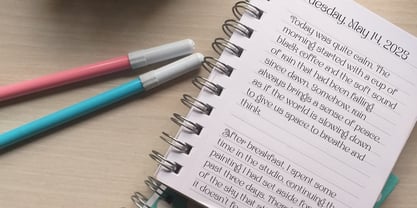 uesday, May 14, 2025
Today was quite calm. The
morning started with a cup of
black coffee and the soft sound
of rain that had been falling
since dawn. Somehow, rain
always brings a sense of peace...
as if the world is slowing down
to give us space to breathe and
think.
After breakfast, I spent some
time in the studio, continuing th
painting I had set aside for the
past three days. There
of the sky that st
it doesn't fe